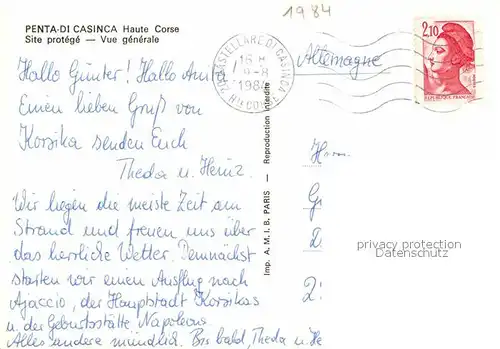 1984
PENTA-DI CASINCA Haute Corse
Site protégé — Vue générale
CASTELLARE DI CASINCA
16 H
9-8
1984
Hte CORSE
2,10
REPUBLIQUE FRANÇAISE
Allemagne
Hallo Günter! Hallo Anita
Einen lieben Gruß von
Korsika senden Euch
Theda u. Heinz.
Wir liegen die meiste Zeit am
Strand und freuen uns über
das herrliche Wetter. Demnächst
starten wir einen Ausflug nach
Ajaccio, der Hauptstadt Korsikas
u. der Geburtsstätte Napoleons
Alles andere mündlich. Bis bald, Theda u. He
Imp. A. M. I. B. PARIS — Reproduction interdite
Herrn
G
2
privacy protection
Datenschutz